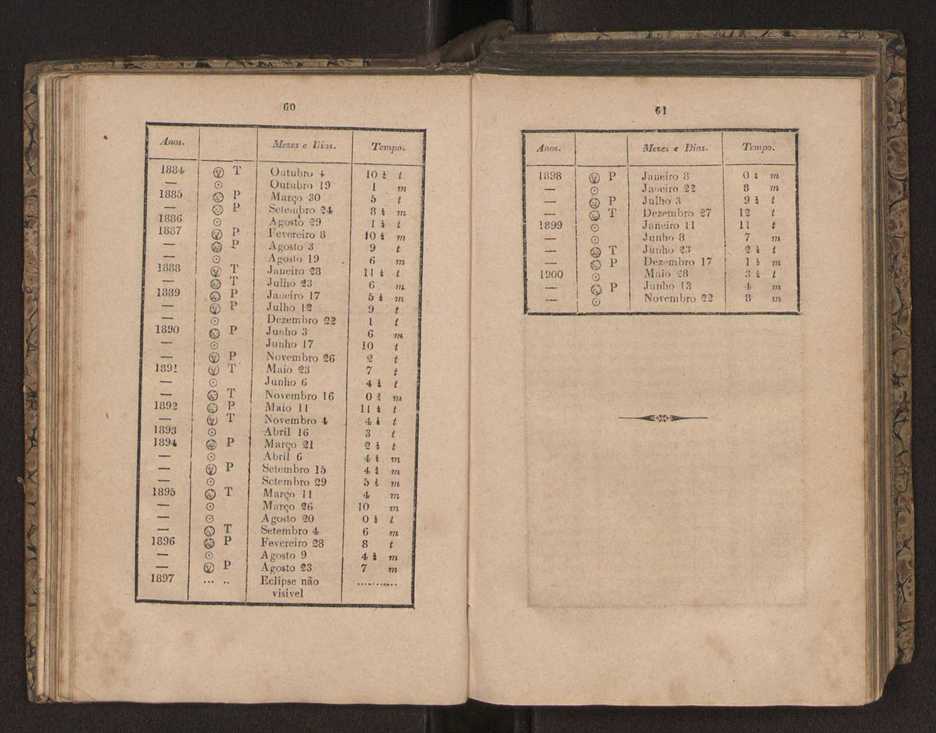 60
Anos. Mezes e Dias. Tempo.
1884 T Outubro 4 10 ½ t
— ☉ Outubro 19 1 m
1885 P Março 30 5 t
— P Setembro 24 8 ½ m
1886 ☉ Agosto 29 1 ½ t
1887 P Fevereiro 8 10 ½ m
— P Agosto 3 9 t
— ☉ Agosto 19 6 m
1888 T Janeiro 28 11 ½ t
— T Julho 23 6 m
1889 P Janeiro 17 5 ½ m
— P Julho 12 9 t
— ☉ Dezembro 22 1 t
1890 P Junho 3 6 m
— ☉ Junho 17 10 t
— P Novembro 26 2 t
1891 T Maio 23 7 t
— ☉ Junho 6 4 ½ t
— T Novembro 16 0 ½ m
1892 P Maio 11 11 ½ t
— T Novembro 4 4 ½ t
1893 ☉ Abril 16 3 t
1894 P Março 21 2 ½ t
— ☉ Abril 6 4 ½ m
— P Setembro 15 4 ½ m
— ☉ Setembro 29 5 ½ m
1895 T Março 11 4 m
— ☉ Março 26 10 m
— ☉ Agosto 20 0 ½ t
— T Setembro 4 6 m
1896 P Fevereiro 28 8 t
— ☉ Agosto 9 4 ½ m
— P Agosto 23 7 m
1897 ... .. Eclipse não ...........
visivel
61
Anos. Mezes e Dias. Tempo.
1898 P Janeiro 8 0 ½ m
— ☉ Janeiro 22 8 m
— P Julho 3 9 ½ t
— T Dezembro 27 12 t
1899 ☉ Janeiro 11 11 t
— ☉ Junho 8 7 m
— T Junho 23 2 ½ t
— P Dezembro 17 1 ½ m
1900 ☉ Maio 28 3 ½ t
— P Junho 13 4 m
— ☉ Novembro 22 8 m